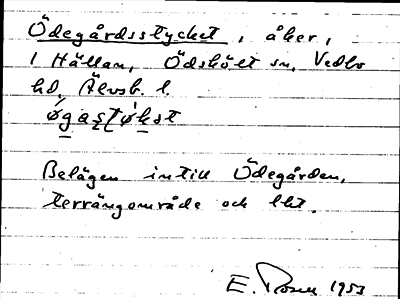 Ödegårdsstycket, åker,
i Hällan, Ödskölt sn, Vedbo
hd, Älvsb. l.
øgastøkst
Belägen intill Ödegården,
terrängområde och lht.
E. Rosen 1953